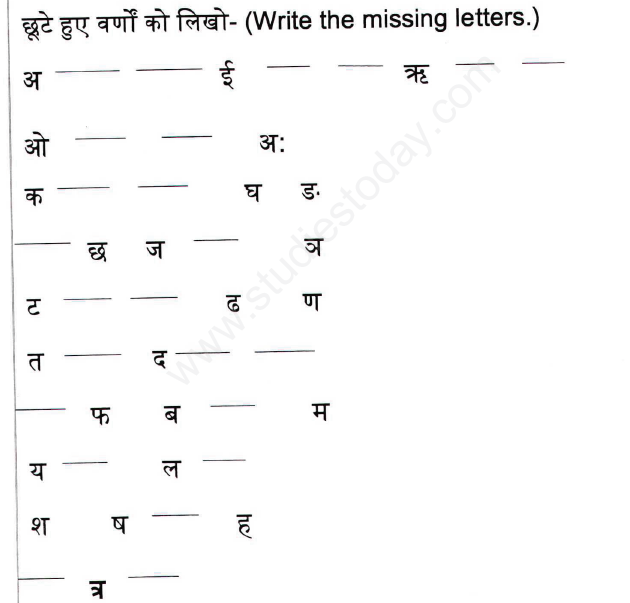 छूटे हुए वर्णों को लिखो- (Write the missing letters.)
अ ____ ____ ई ____ ____ ऋ ____ ____
ओ ____ ____ अ:
क ____ ____ घ ङ
____ छ ज ____ ञ
ट ____ ____ ढ ण
त ____ द ____ ____
____ फ ब ____ म
य ____ ल ____
श ष ____ ह
____ त्र ____
www.studiestoday.com